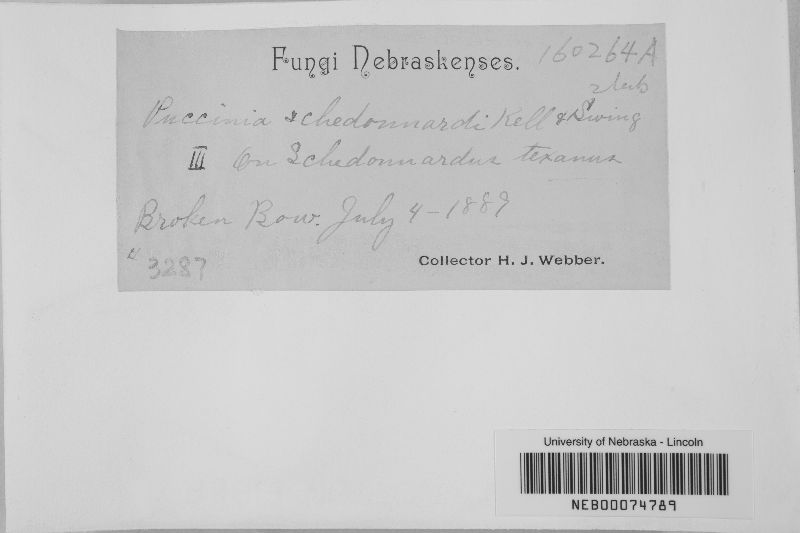 Fungi Nebraskenses. 160264A
Puccinia schedonnardi Kell & Swing
III On Schedonnardus texanus
Broken Bow. July 4-1889
3287
Collector H. J. Webber.
University of Nebraska - Lincoln
NEB00074789